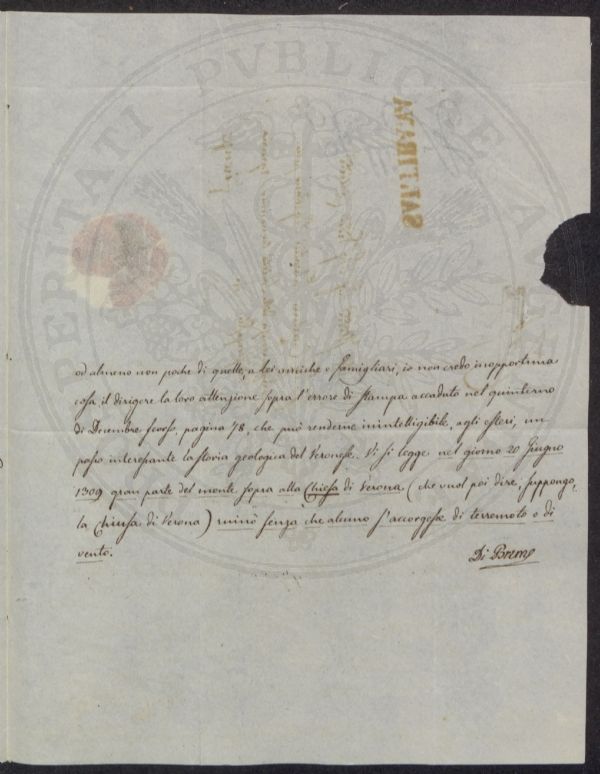 PERITATI PVBLICAE AVCT
SARTIRANA
od almeno non poche di quelle, a lei amiche e famigliari, io non credo inopportuna
cosa il dirigere la loro attenzione sopra l'errore di stampa accaduto nel quinterno
di Decembre scorso, pagina 78, che può renderne inintelligibile, agli esteri, un
passo interessante la storia geologica del Veronese. Vi si legge nel giorno 20 Giugno
1309 gran parte del monte sopra alla Chiesa di Verona (che vuol poi dire, suppongo,
la Chiusa di Verona) ruinò senza che alcuno s'accorgesse di terremoto o di
vento.
Di Breme